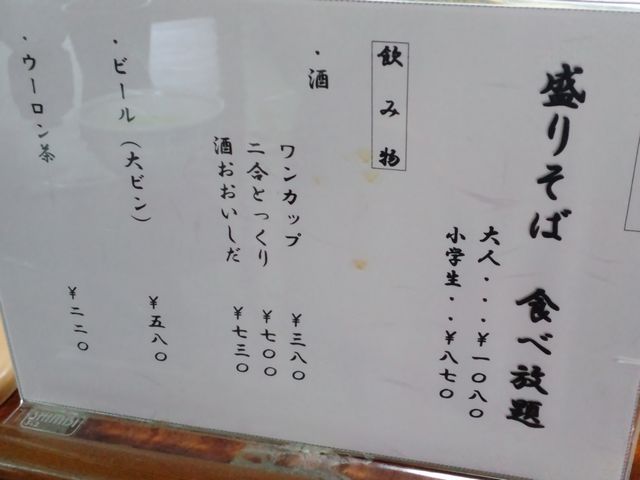 盛りそば 食べ放題
大人・・・￥一〇八〇
小学生・・￥八七〇
飲み物
・酒
ワンカップ ￥三八〇
二合とっくり ￥七〇〇
酒おおいしだ ￥七三〇
・ビール（大ビン） ￥五八〇
・ウーロン茶 ￥二二〇